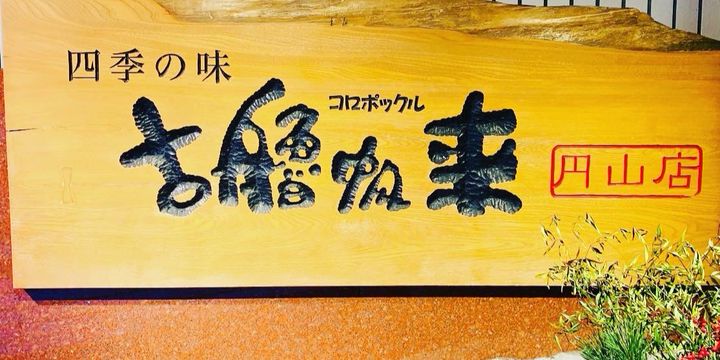 四季の味
コロポックル
古艪帆来
円山店